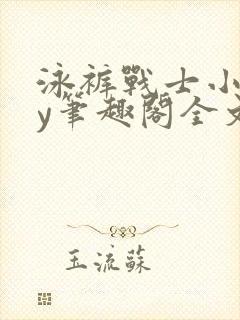 泳裤戰士小
y筆趣閣全文
玉流蘇